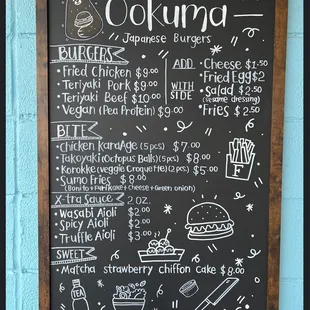 Ookuma
Japanese Burgers
BURGERS
• Fried Chicken $9.00
• Teriyaki Pork $9.00
• Teriyaki Beef $10.00
• Vegan (Pea Protein) $9.00
ADD
WITH
SIDE
• Cheese $1.50
• Fried Egg $2
• Salad $2.50
(sesame dressing)
• Fries $2.50
BITE
• Chicken karaAge (5pcs) $7.00
• Takoyaki (Octopus Balls) (5pcs) $8.00
• Korokke (veggie Croquette) (2pcs) $5.00
• Sumo Fries $8.00
(Bonito + Furikake + Cheese + Green onion)
X-tra Sauce 2 oz.
• Wasabi Aioli $2.00
• Spicy Aioli $2.00
• Truffle Aioli $3.00
SWEET
• Matcha strawberry chiffon cake $8.00
TEA
F